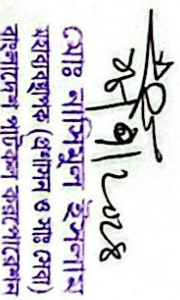 মোঃ নাসিমুল ইসলাম
মহাব্যবস্থাপক (প্রশাসন ও সাঃ সেবা)
বাংলাদেশ পর্যটন করপোরেশন